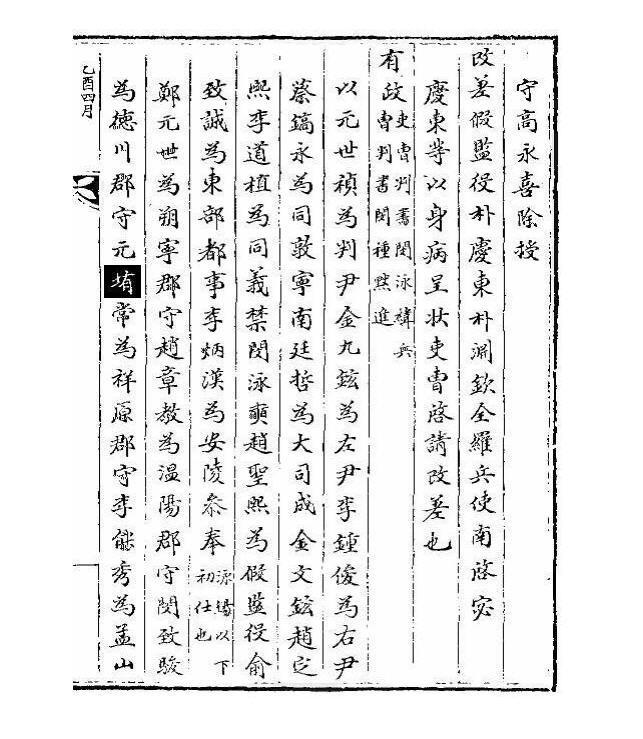 守高永喜除授
改差假監役朴慶東朴淵欽全羅兵使南啓宓
慶東等以身病呈状吏曹啓請改差也
有政吏曹判書閔泳緯兵曹判書閔種黙進
以元世禎為判尹金九鉉為左尹李鍾俊為右尹
蔡鎬永為同敦寧南廷哲為大司成金文鉉趙定
熙李道植為同義禁閔泳奭趙聖熙為假監役俞
致誠為東部都事李炳漢為安陵叅奉以下初仕也
鄭元世為朔寧郡守趙章教為温陽郡守閔致駿
為德川郡守元堉常為祥原郡守李能秀為孟山
乙酉四月